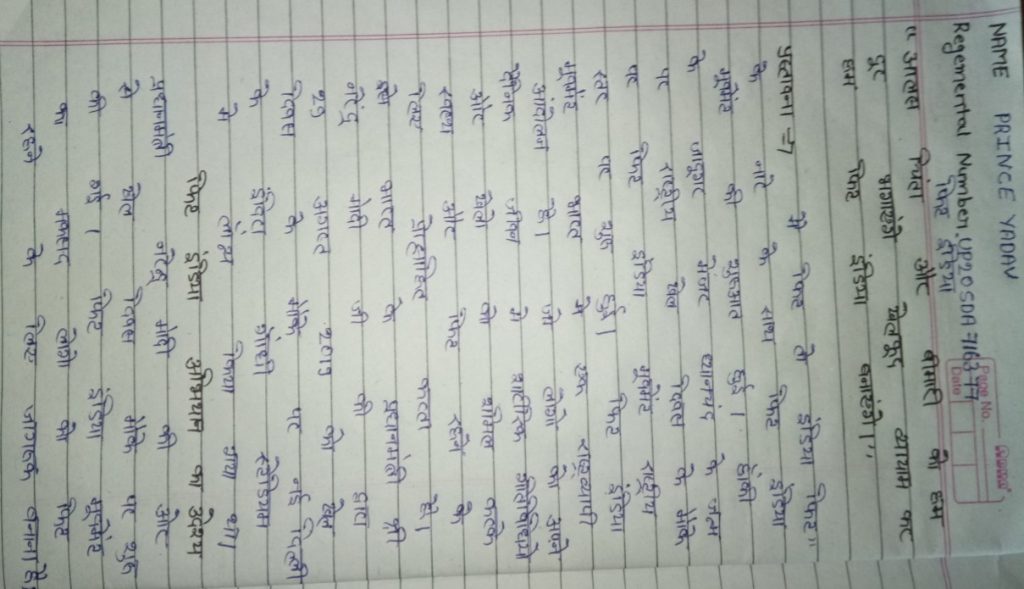 NAME PRINCE YADAV
Page No.
Date
Regemental Number UP20SDA 716344
फिट इंडिया
" आलस चिंता और बीमारी को हम
दूर भगाएंगे खेलकूद व्यायाम कर
हम फिट इंडिया बनाएंगे।"
प्रस्तावना → मै फिट तो इंडिया फिट"
के नारे के साथ फिट इंडिया
मूवमेंट की शुरुआत हुई। हॉकी
के जादूगर मेजर ध्यानचंद के जन्म
पर राष्ट्रीय खेल दिवस के मौके
पर फिट इंडिया मूवमेंट राष्ट्रीय
स्तर पर शुरू हुई। फिट इंडिया
मूवमेंट भारत मे एक राष्ट्रव्यापी
आंदोलन है। जो लोगो को अपने
दैनिक जीवन मे शारीरिक गतिविधियो
और खेलो को शामिल करके
स्वस्थ और फिट रहने के
लिए प्रोत्साहित करता है।
इसे भारत के प्रधानमंत्री श्री
नरेंद्र मोदी जी की द्वारा
29 अगस्त 2019 को खेल
दिवस के मौके पर नई दिल्ली
के इंदिरा गांधी स्टेडियम
मे लांच किया गया था।
फिट इंडिया अभियान का उद्देश्य
प्रधानमंत्री नरेंद्र मोदी की ओर
से खेल दिवस मौके पर शुरू
की गई। फिट इंडिया मूवमेंट
का मकसद लोगो को फिट
रहने के लिए जागरूक बनाना है।